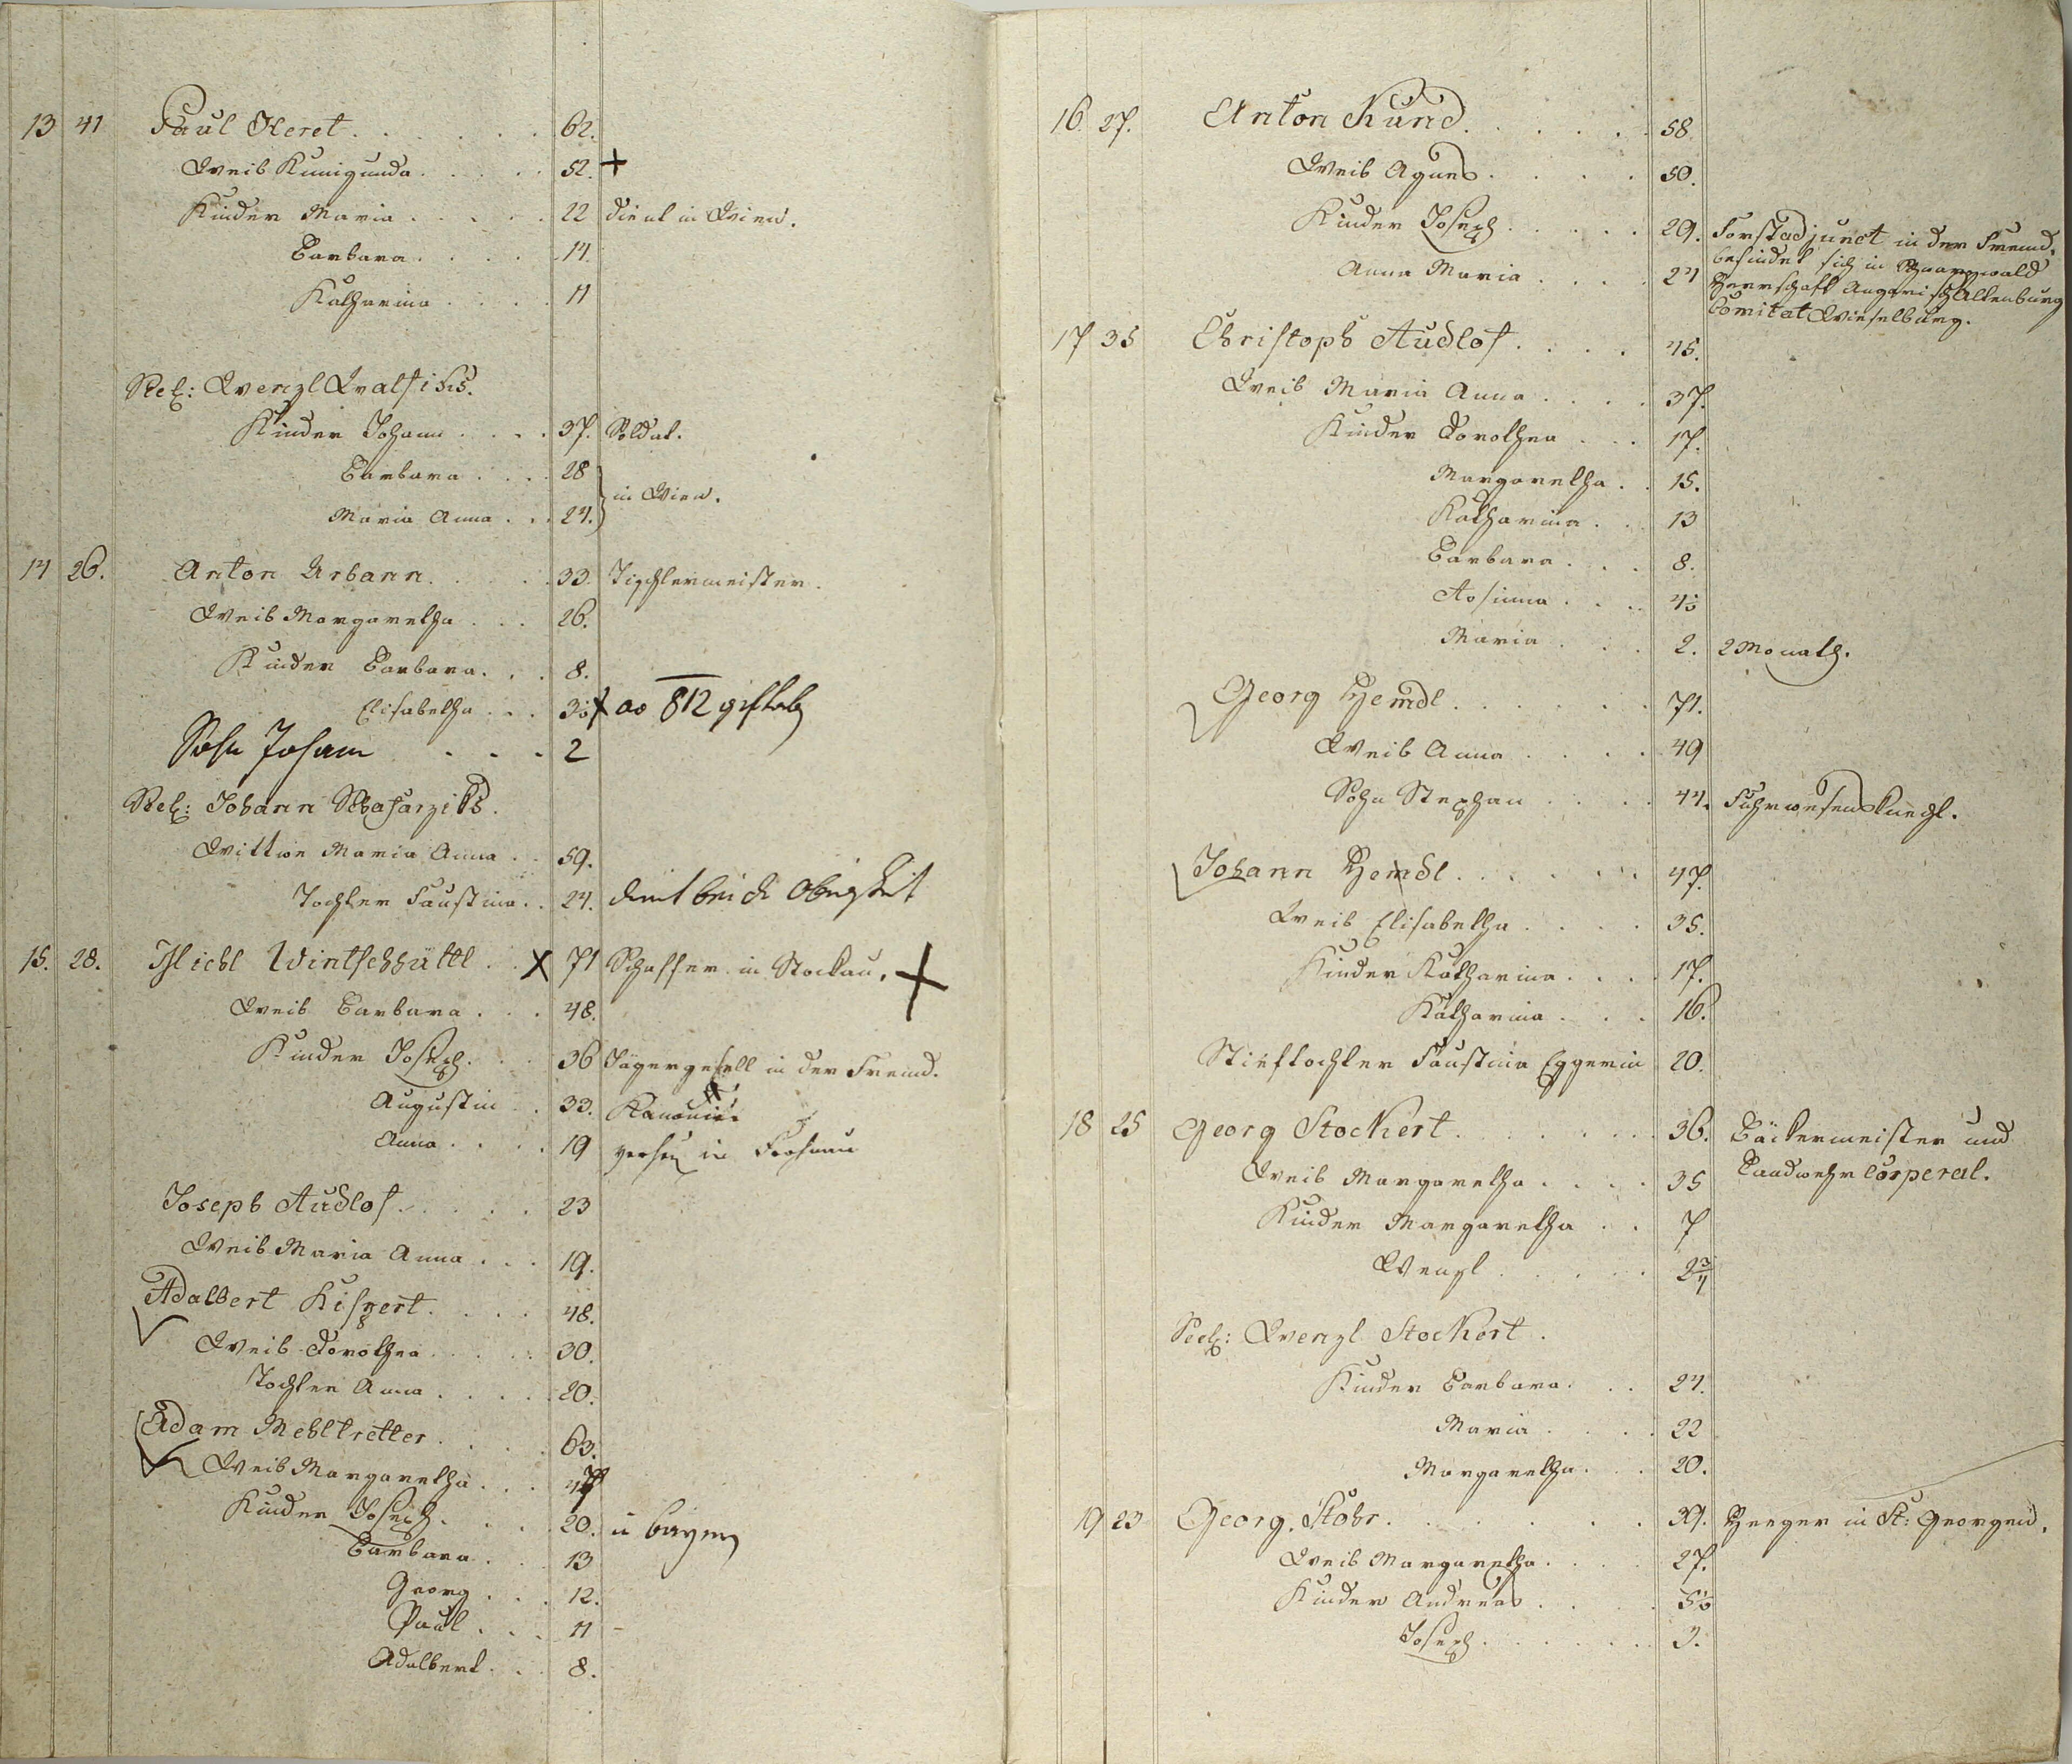 13 41 Paul Heret 62.
Weib Kunigunda 52. +
Kinder Maria 22 dient in Wien.
Barbara 14.
Katharina 11
Sel: Wenzl
Kinder Johann 37. Soldat.
Barbara 28
in Wien.
Maria Anna 24.
14 26. Anton Urbann 33. Tischlermeister.
Weib Margaretha 26.
Kinder Barbara 8.
Elisabetha ao 812 gestorb
Sohn Johann 2
Sel: Johann
Wittwe Maria Anna 59.
Tochter Faustina 24. dient bei d Obrigkeit
15. 28. Michl Wintschhüttl x 71 Schaffer in Stockau. +
Weib Barbara 48.
Kinder Joseph 36 Jägergesell in der Fremd.
Augustin 33. Kanonier
Anna 19 in
Joseph Rudlof 23
Weib Maria Anna 19.
Adalbert Kispert 48.
Weib Dorothea 30.
Tochter Anna 20.
Adam Mehltretter 63.
Weib Margaretha
Kinder Joseph 20. in bayern
Barbara 13
Georg 12.
Paul 11
Adalbert 8.
16. 27. Anton Kund 58.
Weib Agnes 50.
Kinder Joseph 29. Forstadjunct in der Fremd,
befindet sich in
Anna Maria 24 Herrschaft Ungarisch Altenburg
Comitat Wieselburg.
17 35 Christoph Rudlof 45.
Weib Maria Anna 37.
Kinder Dorothea 17.
Margaretha 15.
Katharina 13
Barbara 8.
Rosinna
Maria 2. 2 Monath.
Georg Hemdl 71.
Weib Anna 49
Sohn Stephan 44. Fuhrwesensknecht.
Johann Hemdl 47.
Weib Elisabetha 35.
Kinder Katharina 17.
Katharina 16.
Stieftochter Faustina Eggerin 20.
18 25 Georg Stockert 36. Bäckermeister und
Landwehr Corperal.
Weib Margaretha 35
Kinder Margaretha 7
Wenzl 2 3/4
Seel: Wenzl Stockert.
Kinder Barbara 24.
Maria 22
Margaretha 20.
19 23 Georg Stöhr Heeger in St: Georgen.
Weib Margaretha 27.
Kinder Andreas
Joseph 3.